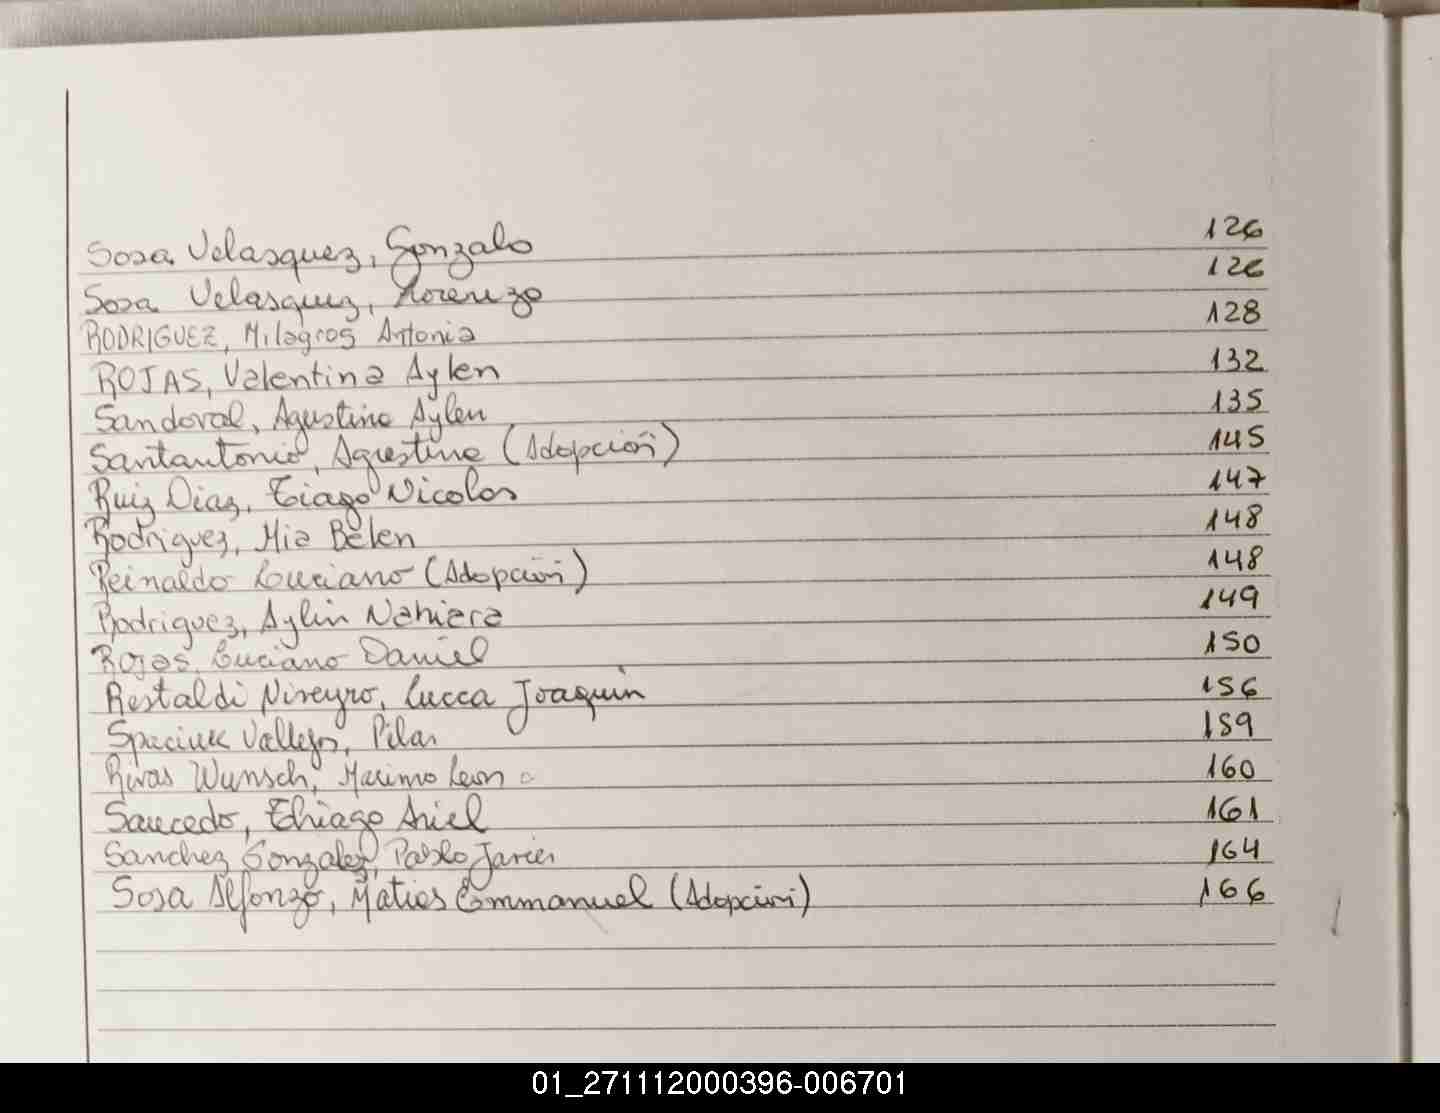 Sosa Velasquez, Gonzalo 126
Sosa Velasquez, Lorenzo 126
RODRIGUEZ, Milagros Antonia 128
ROJAS, Valentina Aylen 132
Sandoval, Agustina Aylen 135
Santantonio, Agustina (Adopción) 145
Ruiz Diaz, Tiago Nicolas 147
Rodriguez, Mia Belen 148
Reinaldo Luciano (Adopción) 148
Rodriguez, Aylin Nahiara 149
Rojas, Luciano Daniel 150
Restaldi Nireyro, Lucca Joaquin 156
Spaciuk Vallejos, Pilar 159
Rivas Wunsch, Maximo Leon 160
Saucedo, Thiago Ariel 161
Sanchez Gonzalez, Pablo Javier 164
Sosa Alfonzo, Matias Emmanuel (Adopción) 166
01_271112000396-006701